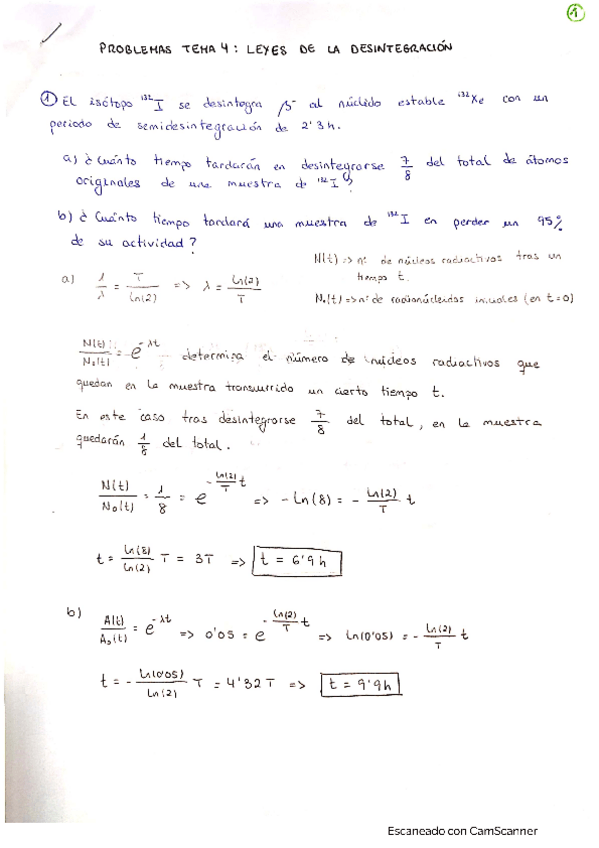 1
PROBLEMAS TEMA 4: LEYES DE LA DESINTEGRACIÓN
① El isótopo ¹³²I se desintegra β⁻ al núclido estable ¹³²Xe con un
periodo de semidesintegración de 2'3h.
a) ¿Cuánto tiempo tardarán en desintegrarse 7/8 del total de átomos
originales de una muestra de ¹³²I?
b) ¿Cuánto tiempo tardará una muestra de ¹³²I en perder un 95%
de su actividad?
N(t) => nº de núcleos radiactivos tras un
tiempo t.
N₀(t) => nº de radionúcleidos iniciales (en t=0)
a) 1/λ = T/Ln(2) => λ = Ln(2)/T
N(t)/N₀(t) = e^(-λt) determina el número de núcleos radiactivos que
quedan en la muestra transcurrido un cierto tiempo t.
En este caso tras desintegrarse 7/8 del total, en la muestra
quedarán 1/8 del total.
N(t)/N₀(t) = 1/8 = e^(-Ln(2)/T t) => -Ln(8) = - Ln(2)/T t
t = Ln(8)/Ln(2) T = 3T => t = 6'9h
b) A(t)/A₀(t) = e^(-λt) => 0'05 = e^(-Ln(2)/T t) => Ln(0'05) = - Ln(2)/T t
t = - Ln(0'05)/Ln(2) T = 4'32T => t = 9'9h
Escaneado con CamScanner